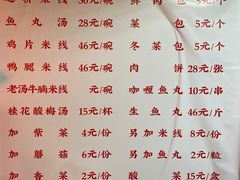 米线 30元/碗 鲜肉包 8元/个
鱼丸汤 28元/碗 菜包 5元/个
鸡片米线 46元/碗 冬菜包 5元/个
鸭腿米线 46元/碗 肉饼 28元/张
老汤牛腩米线 元/碗 咖喱鱼丸 10元/串
桂花酸梅汤 15元/杯 生鱼丸 46元/斤
加紫菜 2元/份 另加米线 6元/份
加蘑菇 6元/份 另加鱼丸 4元/个
加香菜 2元/份 酸菜 15元/盒